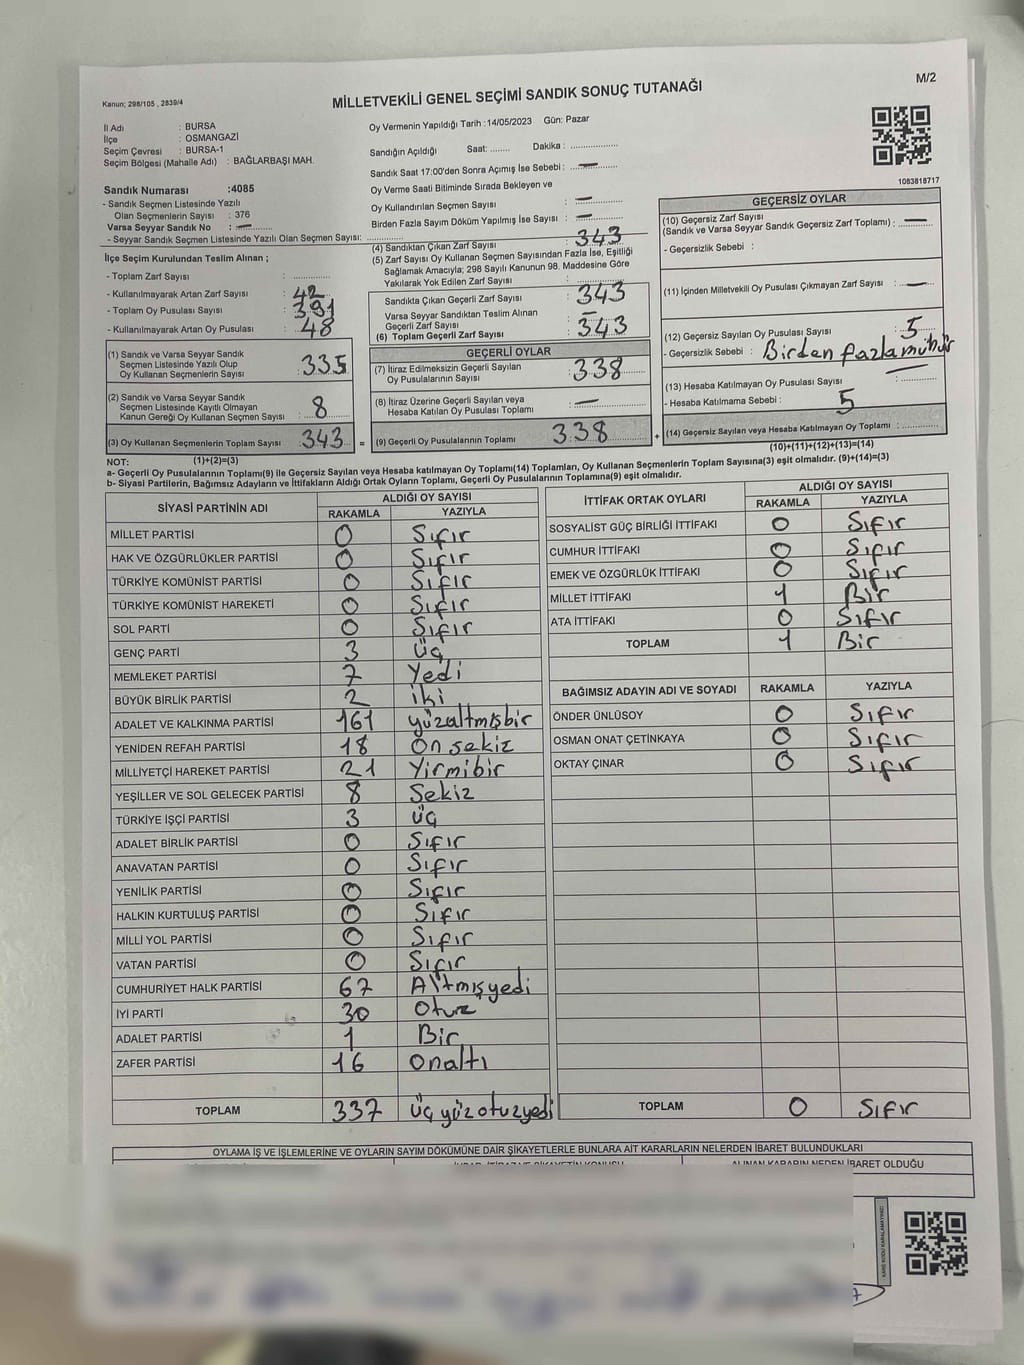 M/2
Kanun; 298/105 , 2839/4
MİLLETVEKİLİ GENEL SEÇİMİ SANDIK SONUÇ TUTANAĞI
İl Adı : BURSA
İlçe : OSMANGAZİ
Seçim Çevresi : BURSA-1
Seçim Bölgesi (Mahalle Adı) : BAĞLARBAŞI MAH.
Sandık Numarası :4085
- Sandık Seçmen Listesinde Yazılı
Olan Seçmenlerin Sayısı : 376
Varsa Seyyar Sandık No : —
- Seyyar Sandık Seçmen Listesinde Yazılı Olan Seçmen Sayısı: ..............
İlçe Seçim Kurulundan Teslim Alınan ;
- Toplam Zarf Sayısı : ..............
- Kullanılmayarak Artan Zarf Sayısı : 42
- Toplam Oy Pusulası Sayısı : 391
- Kullanılmayarak Artan Oy Pusulası : 48
(1) Sandık ve Varsa Seyyar Sandık
Seçmen Listesinde Yazılı Olup
Oy Kullanan Seçmenlerin Sayısı : 335
(2) Sandık ve Varsa Seyyar Sandık
Seçmen Listesinde Kayıtlı Olmayan
Kanun Gereği Oy Kullanan Seçmen Sayısı : 8
(3) Oy Kullanan Seçmenlerin Toplam Sayısı : 343 =
(1)+(2)=(3)
Oy Vermenin Yapıldığı Tarih :14/05/2023 Gün: Pazar
Sandığın Açıldığı Saat: ........ Dakika : ..................
Sandık Saat 17:00'den Sonra Açımış İse Sebebi : —
Oy Verme Saati Bitiminde Sırada Bekleyen ve
Oy Kullandırılan Seçmen Sayısı : —
Birden Fazla Sayım Döküm Yapılmış İse Sayısı : —
(4) Sandıktan Çıkan Zarf Sayısı : 343
(5) Zarf Sayısı Oy Kullanan Seçmen Sayısından Fazla İse, Eşitliği
Sağlamak Amacıyla; 298 Sayılı Kanunun 98. Maddesine Göre
Yakılarak Yok Edilen Zarf Sayısı : ..............
Sandıkta Çıkan Geçerli Zarf Sayısı : 343
Varsa Seyyar Sandıktan Teslim Alınan
Geçerli Zarf Sayısı : —
(6) Toplam Geçerli Zarf Sayısı : 343
GEÇERLİ OYLAR
(7) İtiraz Edilmeksizin Geçerli Sayılan
Oy Pusulalarının Sayısı : 338
(8) İtiraz Üzerine Geçerli Sayılan veya
Hesaba Katılan Oy Pusulası Toplamı : —
(9) Geçerli Oy Pusulalarının Toplamı : 338 +
1083818717
GEÇERSİZ OYLAR
(10) Geçersiz Zarf Sayısı
(Sandık ve Varsa Seyyar Sandık Geçersiz Zarf Toplamı) : —
- Geçersizlik Sebebi :
(11) İçinden Milletvekili Oy Pusulası Çıkmayan Zarf Sayısı : —
(12) Geçersiz Sayılan Oy Pusulası Sayısı : 5
- Geçersizlik Sebebi : Birden fazla mühür
(13) Hesaba Katılmayan Oy Pusulası Sayısı : ..............
- Hesaba Katılmama Sebebi :
5
(14) Geçersiz Sayılan veya Hesaba Katılmayan Oy Toplamı : ..............
(10)+(11)+(12)+(13)=(14)
NOT:
a- Geçerli Oy Pusulalarının Toplamı(9) ile Geçersiz Sayılan veya Hesaba katılmayan Oy Toplamı(14) Toplamları, Oy Kullanan Seçmenlerin Toplam Sayısına(3) eşit olmalıdır. (9)+(14)=(3)
b- Siyasi Partilerin, Bağımsız Adayların ve İttifakların Aldığı Ortak Oyların Toplamı, Geçerli Oy Pusulalarının Toplamına(9) eşit olmalıdır.
SİYASİ PARTİNİN ADI ALDIĞI OY SAYISI
RAKAMLA YAZIYLA
MİLLET PARTİSİ 0 Sıfır
HAK VE ÖZGÜRLÜKLER PARTİSİ 0 Sıfır
TÜRKİYE KOMÜNİST PARTİSİ 0 Sıfır
TÜRKİYE KOMÜNİST HAREKETİ 0 Sıfır
SOL PARTİ 0 Sıfır
GENÇ PARTİ 3 üç
MEMLEKET PARTİSİ 7 Yedi
BÜYÜK BİRLİK PARTİSİ 2 iki
ADALET VE KALKINMA PARTİSİ 161 yüzaltmışbir
YENİDEN REFAH PARTİSİ 18 On sekiz
MİLLİYETÇİ HAREKET PARTİSİ 21 Yirmibir
YEŞİLLER VE SOL GELECEK PARTİSİ 8 Sekiz
TÜRKİYE İŞÇİ PARTİSİ 3 üç
ADALET BİRLİK PARTİSİ 0 Sıfır
ANAVATAN PARTİSİ 0 Sıfır
YENİLİK PARTİSİ 0 Sıfır
HALKIN KURTULUŞ PARTİSİ 0 Sıfır
MİLLİ YOL PARTİSİ 0 Sıfır
VATAN PARTİSİ 0 Sıfır
CUMHURİYET HALK PARTİSİ 67 Altmışyedi
İYİ PARTİ 30 Otuz
ADALET PARTİSİ 1 Bir
ZAFER PARTİSİ 16 Onaltı
TOPLAM 337 üç yüz otuz yedi
İTTİFAK ORTAK OYLARI ALDIĞI OY SAYISI
RAKAMLA YAZIYLA
SOSYALİST GÜÇ BİRLİĞİ İTTİFAKI 0 Sıfır
CUMHUR İTTİFAKI 0 Sıfır
EMEK VE ÖZGÜRLÜK İTTİFAKI 0 Sıfır
MİLLET İTTİFAKI 1 Bir
ATA İTTİFAKI 0 Sıfır
TOPLAM 1 Bir
BAĞIMSIZ ADAYIN ADI VE SOYADI RAKAMLA YAZIYLA
ÖNDER ÜNLÜSOY 0 Sıfır
OSMAN ONAT ÇETİNKAYA 0 Sıfır
OKTAY ÇINAR 0 Sıfır
TOPLAM 0 Sıfır
OYLAMA İŞ VE İŞLEMLERİNE VE OYLARIN SAYIM DÖKÜMÜNE DAİR ŞİKAYETLERLE BUNLARA AİT KARARLARIN NELERDEN İBARET BULUNDUKLARI
ALINAN KARARIN NEDEN İBARET OLDUĞU